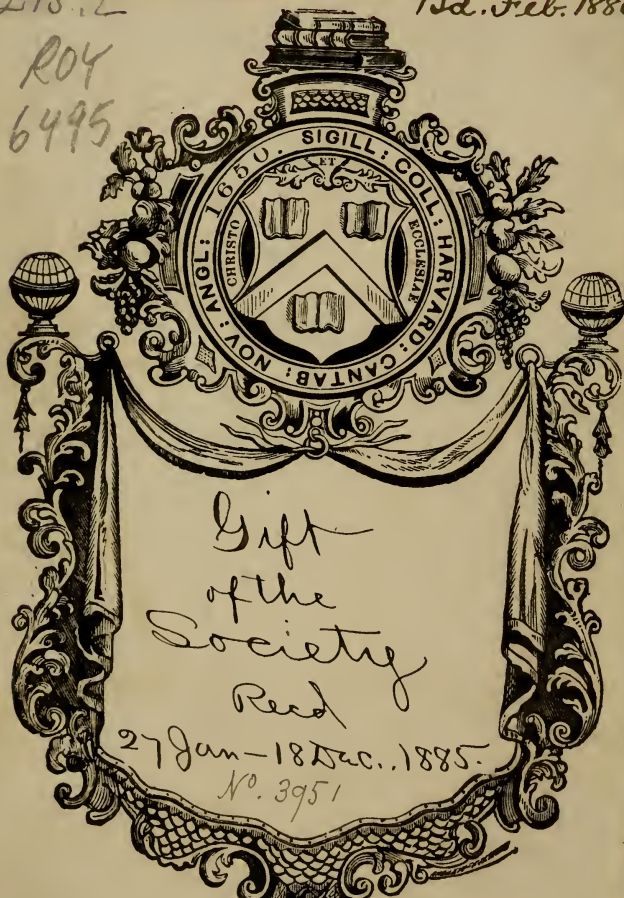 Bd. Feb. 188
ROY
6495
SIGILL: COLL: HARVARD: CANTAB: NOV: ANGL: 1650.
ET
CHRISTO
ECCLESIAE
Gift
of the
Society
Recd
27 Jan–18 Dec., 1885.
No. 3951